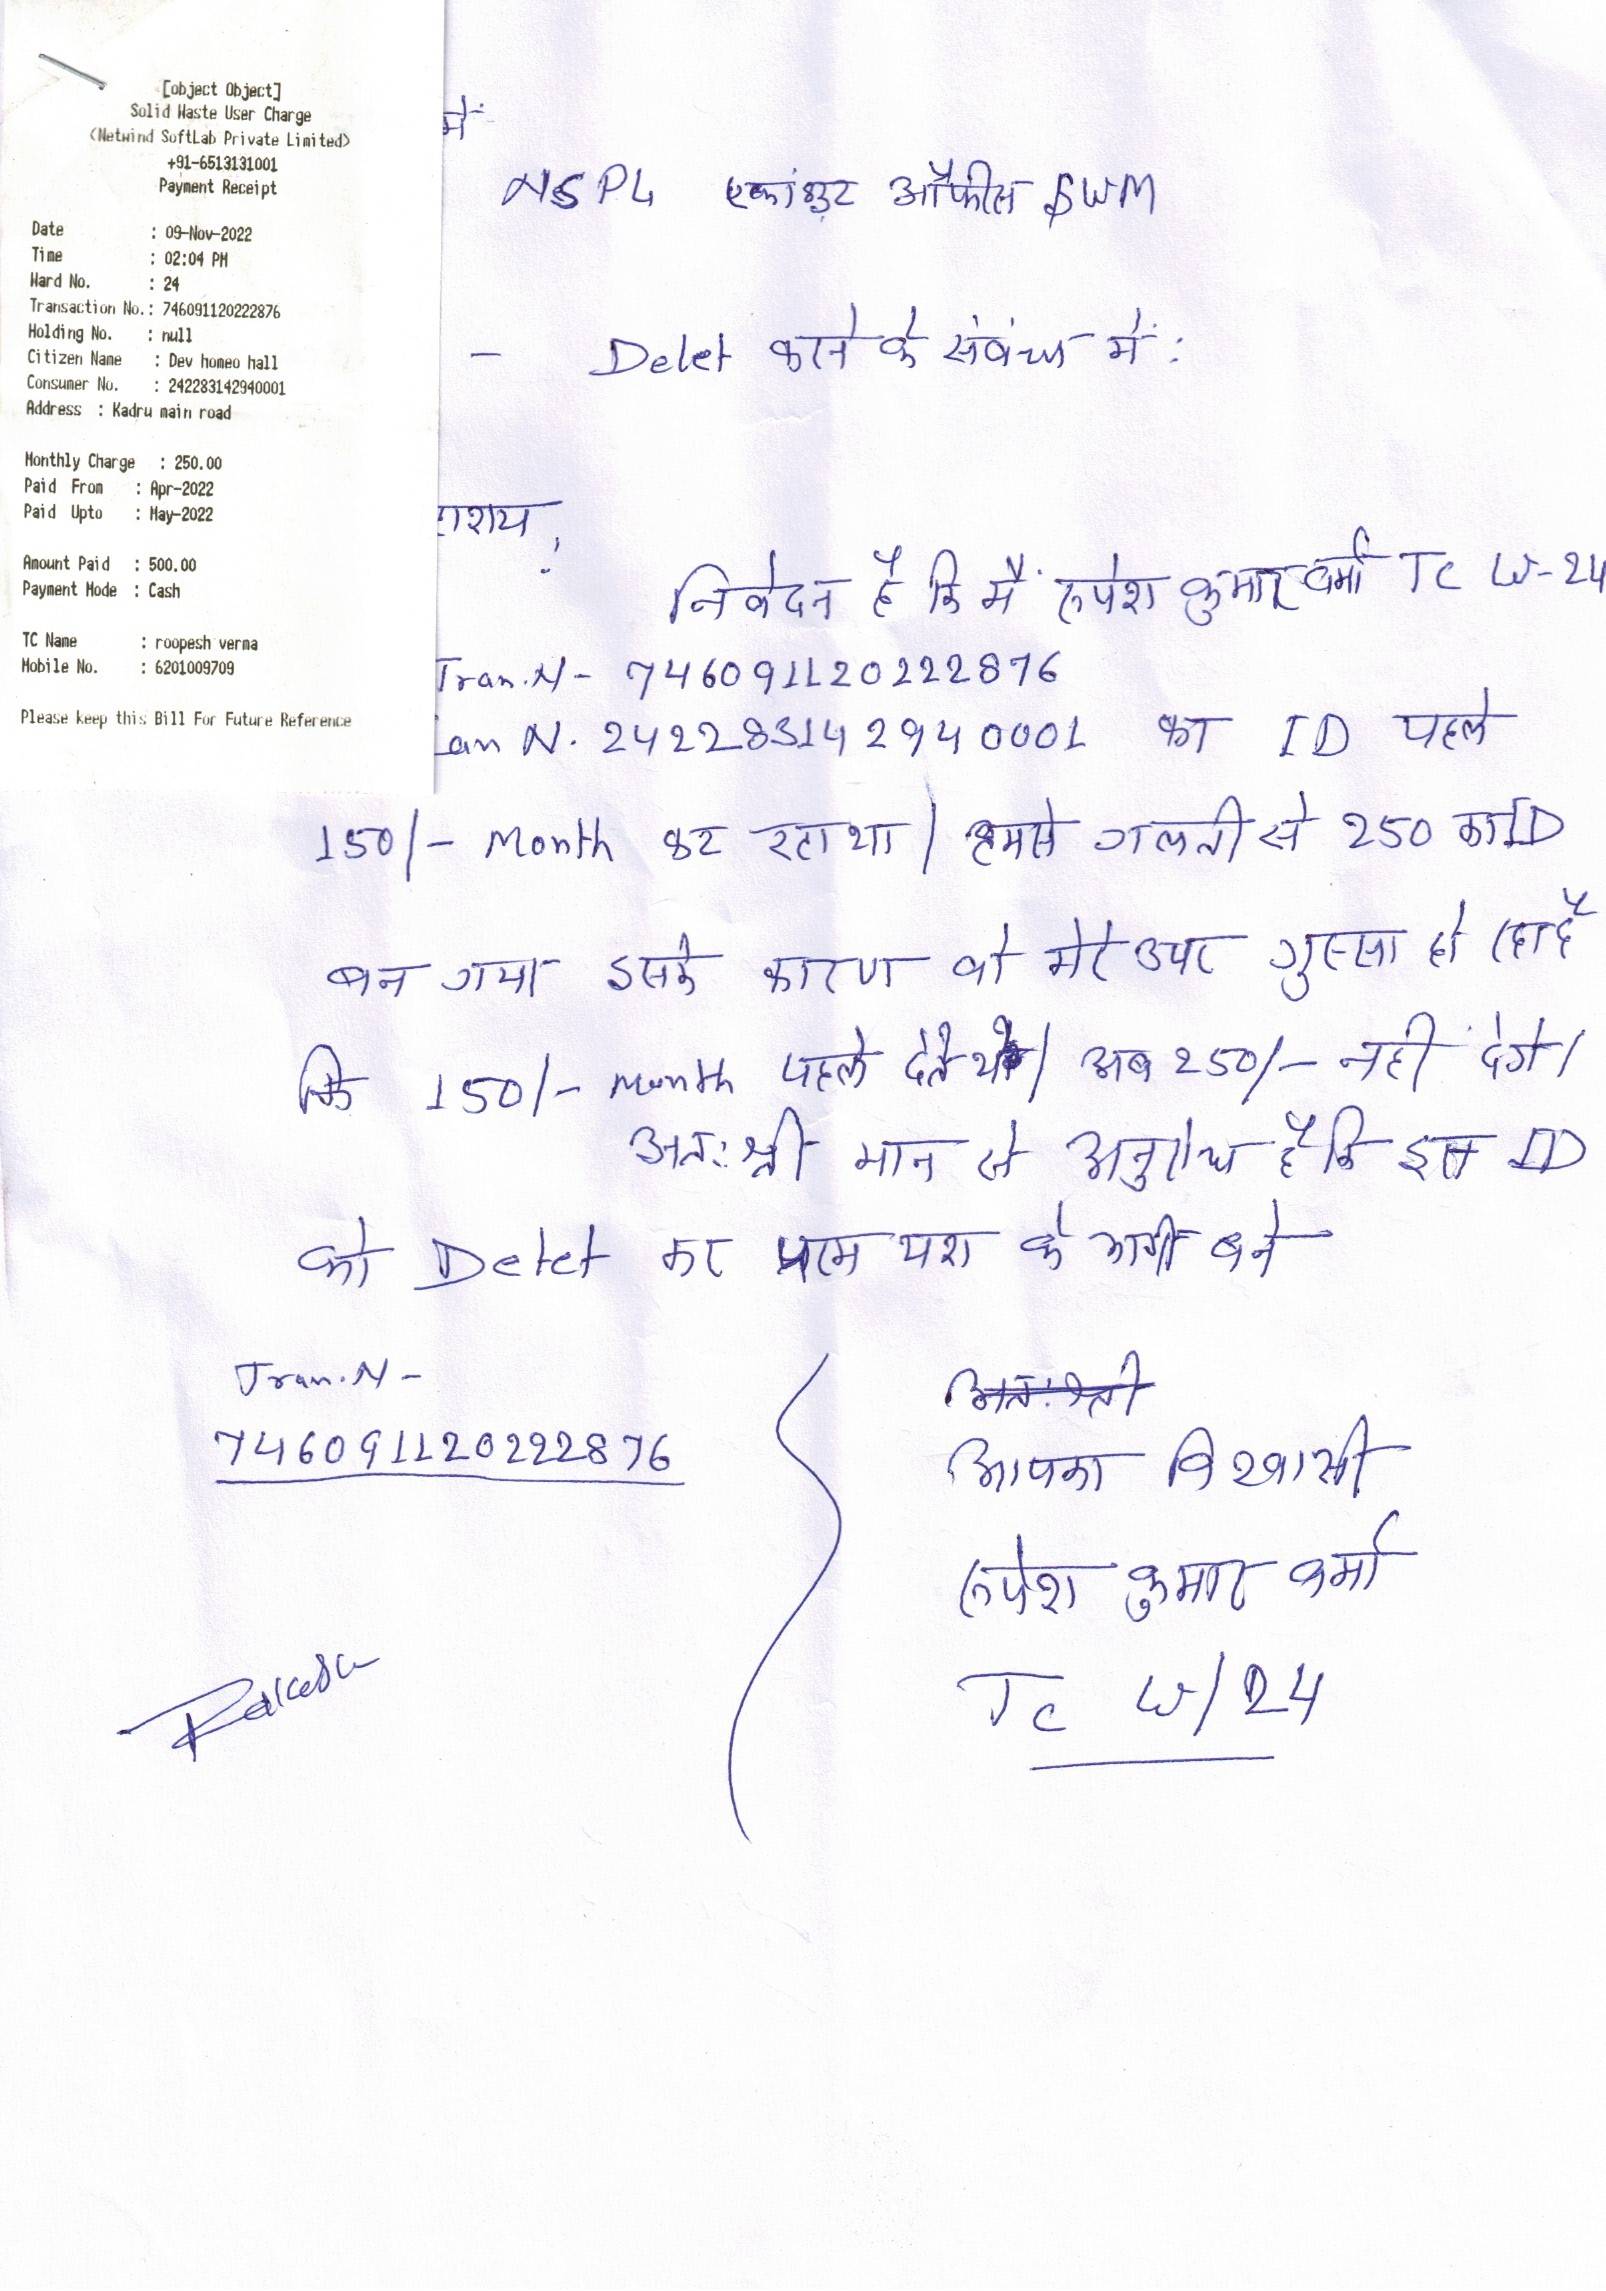 [object Object]
Solid Waste User Charge
(Netwind SoftLab Private Limited)
+91-6513131001
Payment Receipt
Date : 09-Nov-2022
Time : 02:04 PM
Ward No. : 24
Transaction No.: 746091120222876
Holding No. : null
Citizen Name : Dev homeo hall
Consumer No. : 242283142940001
Address : Kadru main road
Monthly Charge : 250.00
Paid From : Apr-2022
Paid Upto : May-2022
Amount Paid : 500.00
Payment Mode : Cash
TC Name : roopesh verma
Mobile No. : 6201009709
Please keep this Bill For Future Reference
में
NSPL एकांउट ऑफीस SWM
- Delet करने के संबंध में :
ाशय,
निवेदन है कि मैं रुपेश कुमार वर्मा TC W-24
Tran.N- 746091120222876
N. 242283142940001 का ID पहले
150/- Month कट रहा था / हमसे गलती से 250 का ID
बन गया इसके कारण वो मेरे उपर गुस्सा हो रहा है
कि 150/- Month पहले देते थे / अब 250/- नही देगे।
अतः श्री मान से अनुरोध है कि इस ID
को Delet कर परम यश के भागी बने
Tran.N-
746091120222876
अतः श्री
आपका विश्वासी
रुपेश कुमार वर्मा
Tc W/24